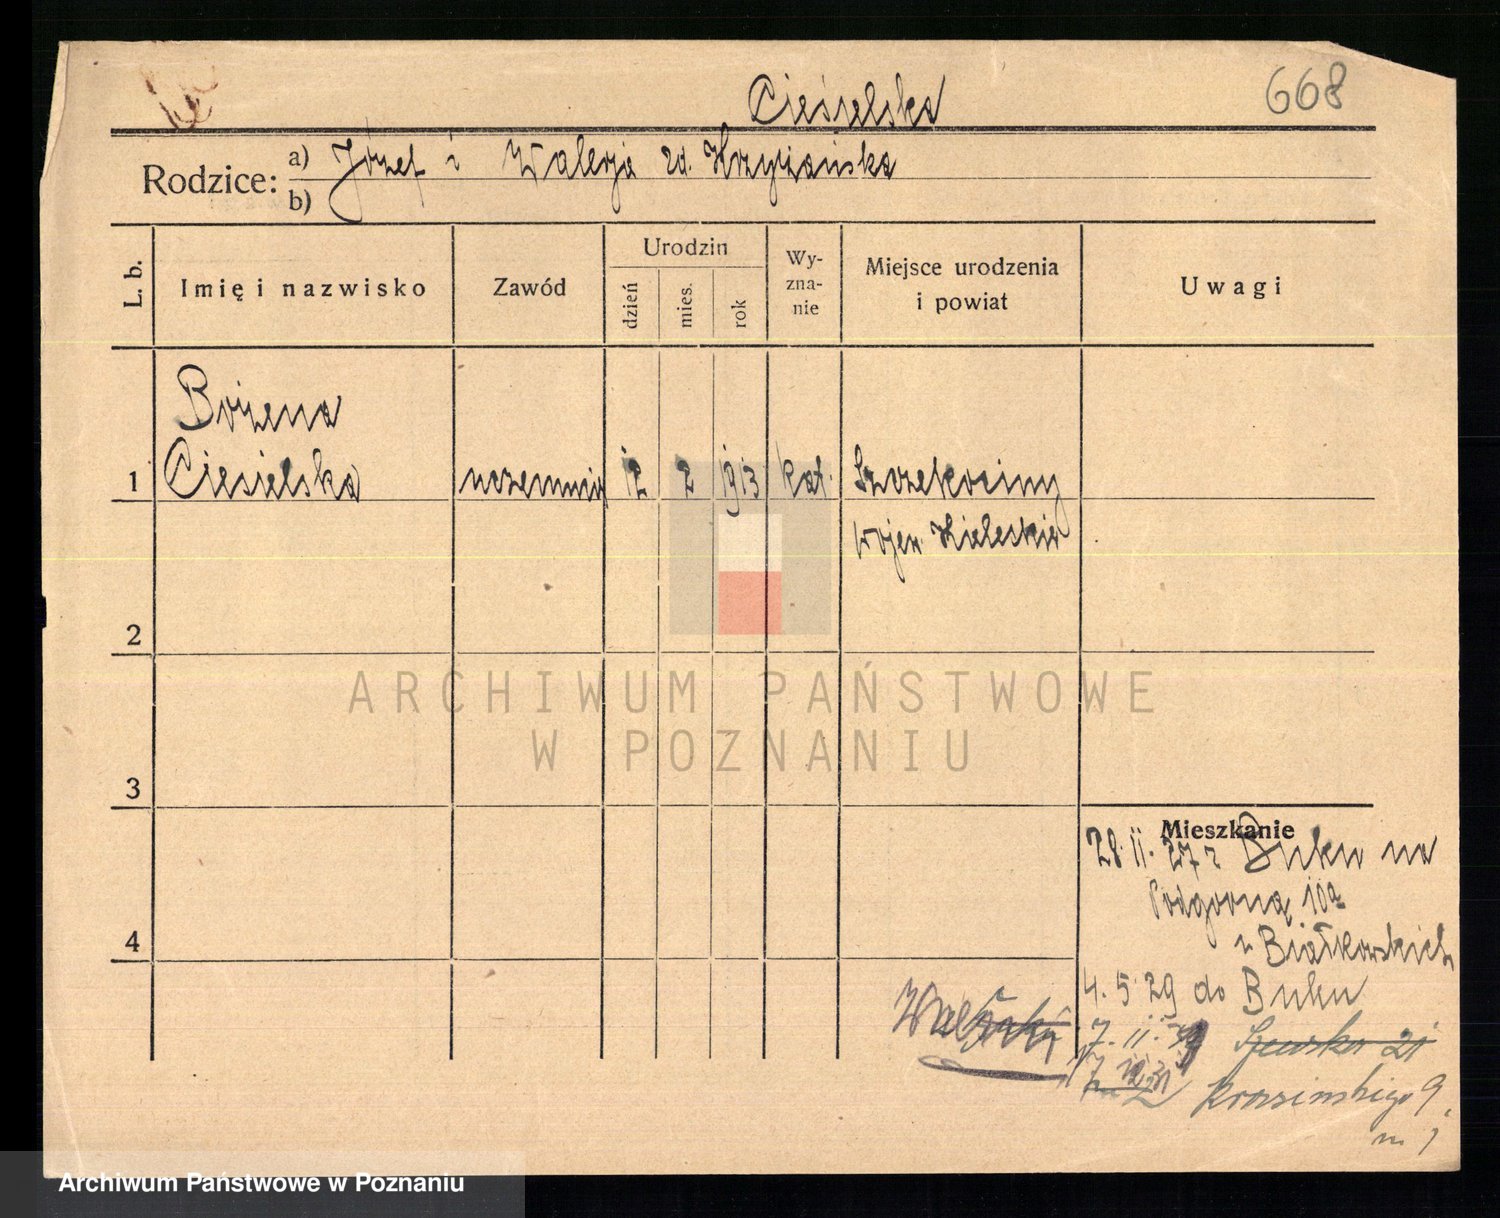 Cieśielska
668
Rodzice: a) Józef i Walerja zd. Krzyżańska
b)
L. b.
Imię i nazwisko
Zawód
Urodzin
dzień
mies.
rok
Wy-
zna-
nie
Miejsce urodzenia
i powiat
Uwagi
Bożena
1 Ciesielska uczennica 12 2 1913 kat. Szczekociny
wojew. Kieleckie
2
ARCHIWUM PAŃSTWOWE
W POZNANIU
3
Mieszkanie
28. 11. 27 z Buku na
Podgórną 10a
u Białkowskich
4
4. 5 29 do Buku
7. 11. Szewska 21
Krasińskiego 9
m 1
Archiwum Państwowe w Poznaniu